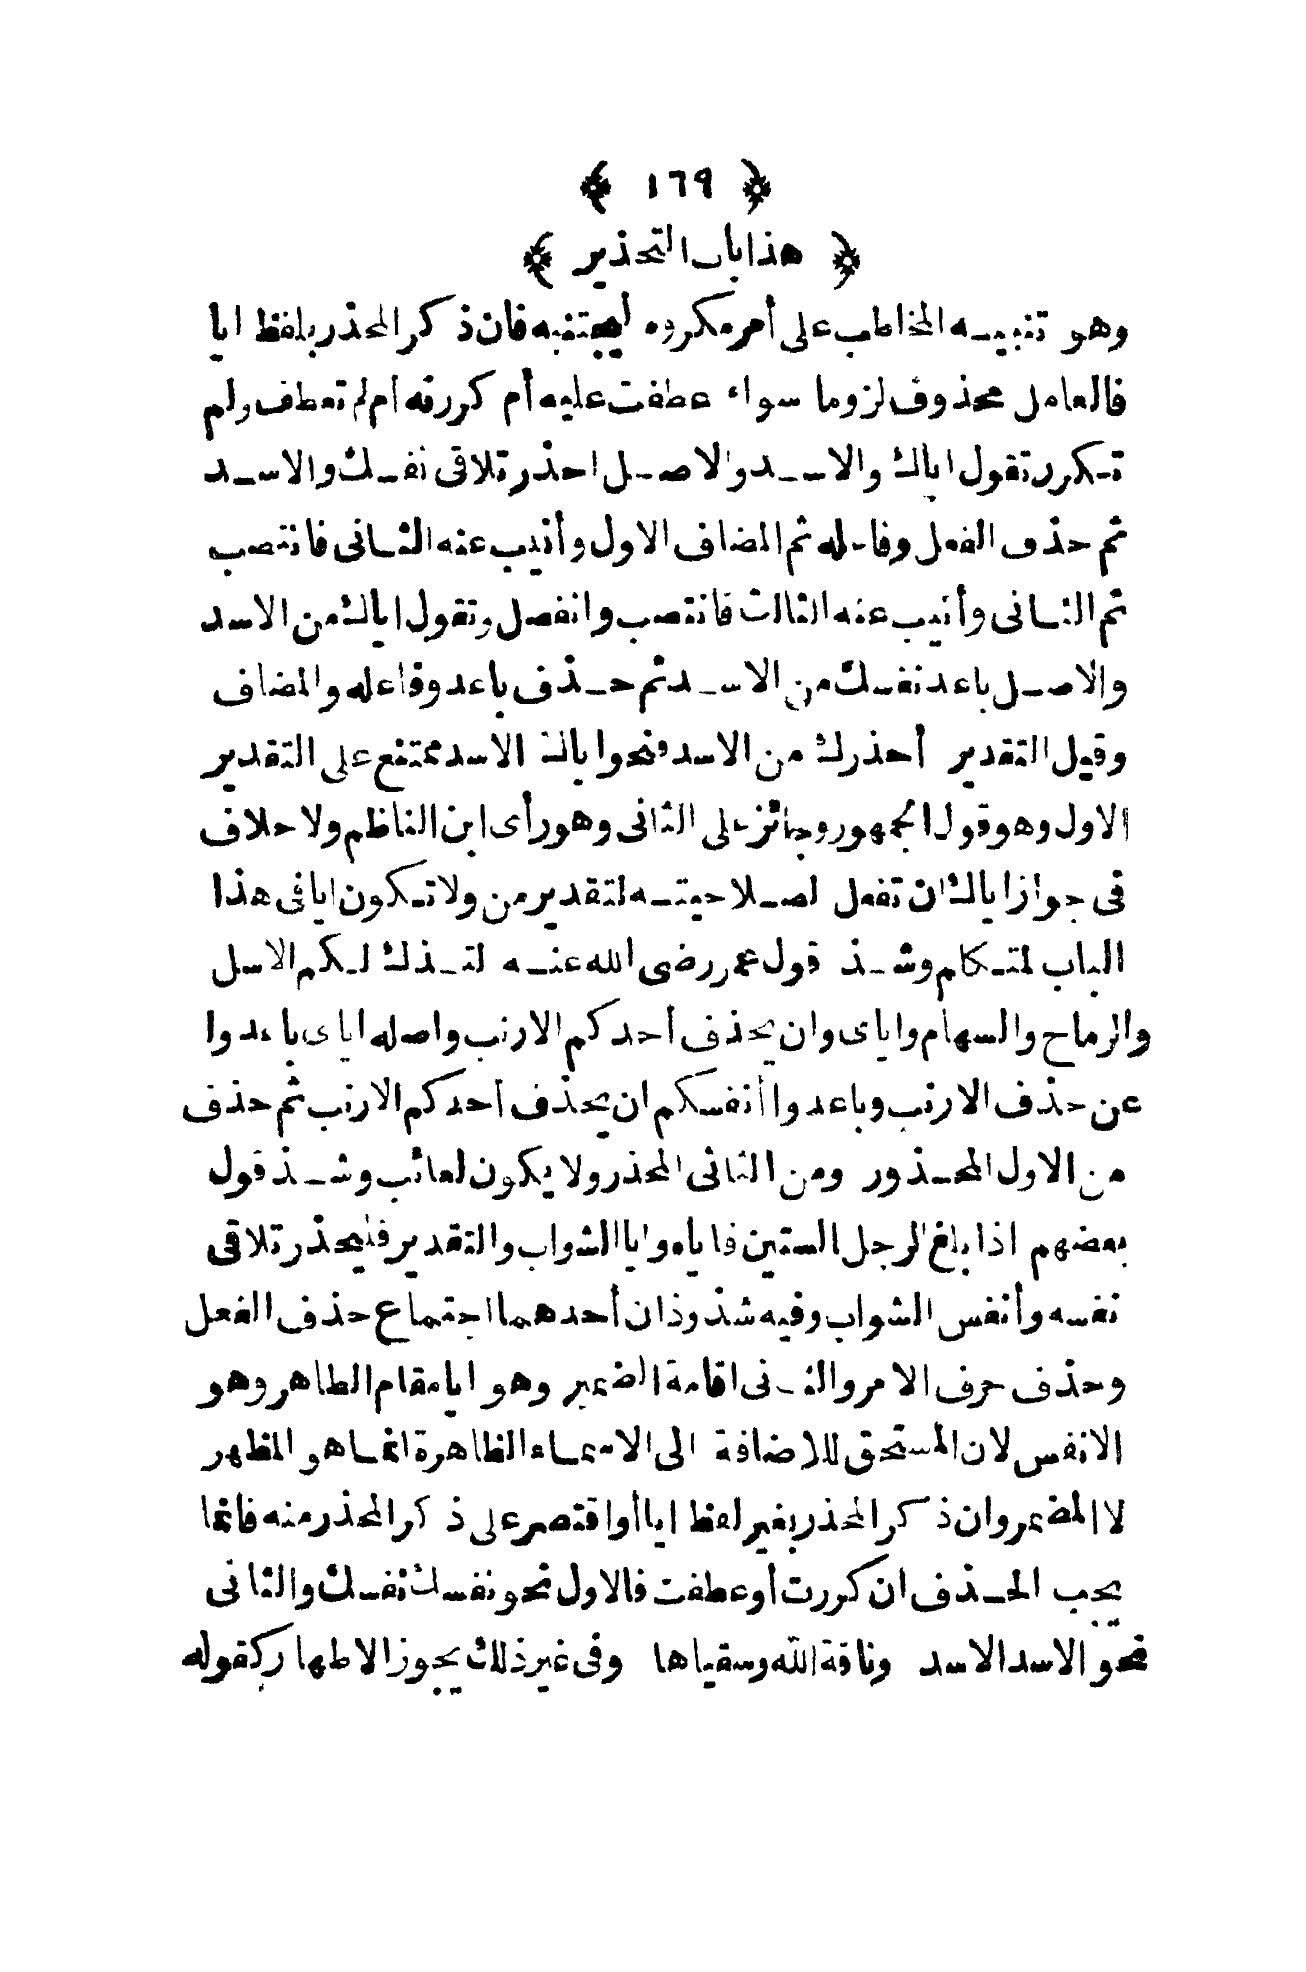 ﴿ ١٦٩ ﴾
﴿ هذا باب التحذير ﴾
وهو تنبيه المخاطب على أمر مكروه ليجتنبه فان ذكر المحذر بلفظ ايا
فالعامل محذوف لزوما سواء عطفت عليه أم كررته أم لم تعطف ولم
تكرر تقول اياك والاسد والاصل احذر تلاقى نفسك والاسد
ثم حذف الفعل وفاعله ثم المضاف الاول وأنيب عنه الثانى فانتصب
ثم الثانى وأنيب عنه الثالث فانتصب وانفصل وتقول اياك من الاسد
والاصل باعد نفسك من الاسد ثم حذف باعد وفاعله والمضاف
وقيل التقدير أحذرك من الاسد فنحو اياك الاسد ممتنع على التقدير
الاول وهو قول الجمهور وجائز على الثانى وهو رأى ابن الناظم ولا خلاف
فى جواز اياك ان تفعل لصلاحيته لتقدير من ولا تكون ايا فى هذا
الباب لمتكلم وشذ قول عمر رضى الله عنه لتذك لكم الاسل
والرماح والسهام واياى وان يحذف أحدكم الارنب واصله اياى باعدوا
عن حذف الارنب وباعدوا أنفسكم ان يحذف أحدكم الارنب ثم حذف
من الاول المحذور ومن الثانى المحذر ولا يكون لغائب وشذ قول
بعضهم اذا بلغ الرجل الستين فاياه وايا الشواب والتقدير فليحذر تلاقى
نفسه وأنفس الشواب وفيه شذوذان أحدهما اجتماع حذف الفعل
وحذف حرف الامر والثانى اقامة الضمير وهو ايا مقام الظاهر وهو
الانفس لان المستحق للاضافة الى الاسماء الظاهرة انما هو المظهر
لا المضمر وان ذكر المحذر بغير لفظ ايا أو اقتصر على ذكر المحذر منه فانما
يجب الحذف ان كررت أو عطفت فالاول نحو نفسك نفسك والثانى
نحو الاسد الاسد وناقة الله وسقياها وفى غير ذلك يجوز الاظهار كقوله